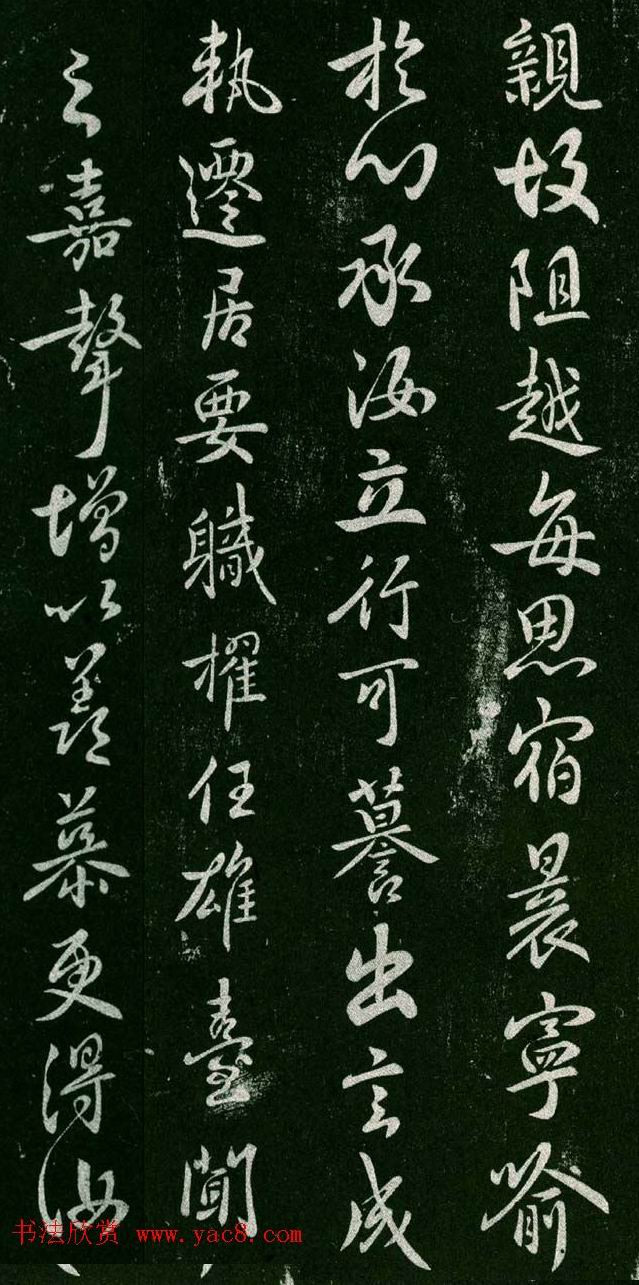 親故阻越每思宿晨寧喻
於心承汝立行可謩出言成
軌遷居要職擢任雄臺聞
之嘉聲增以羨慕更得汝
书法欣赏 www.yac8.com